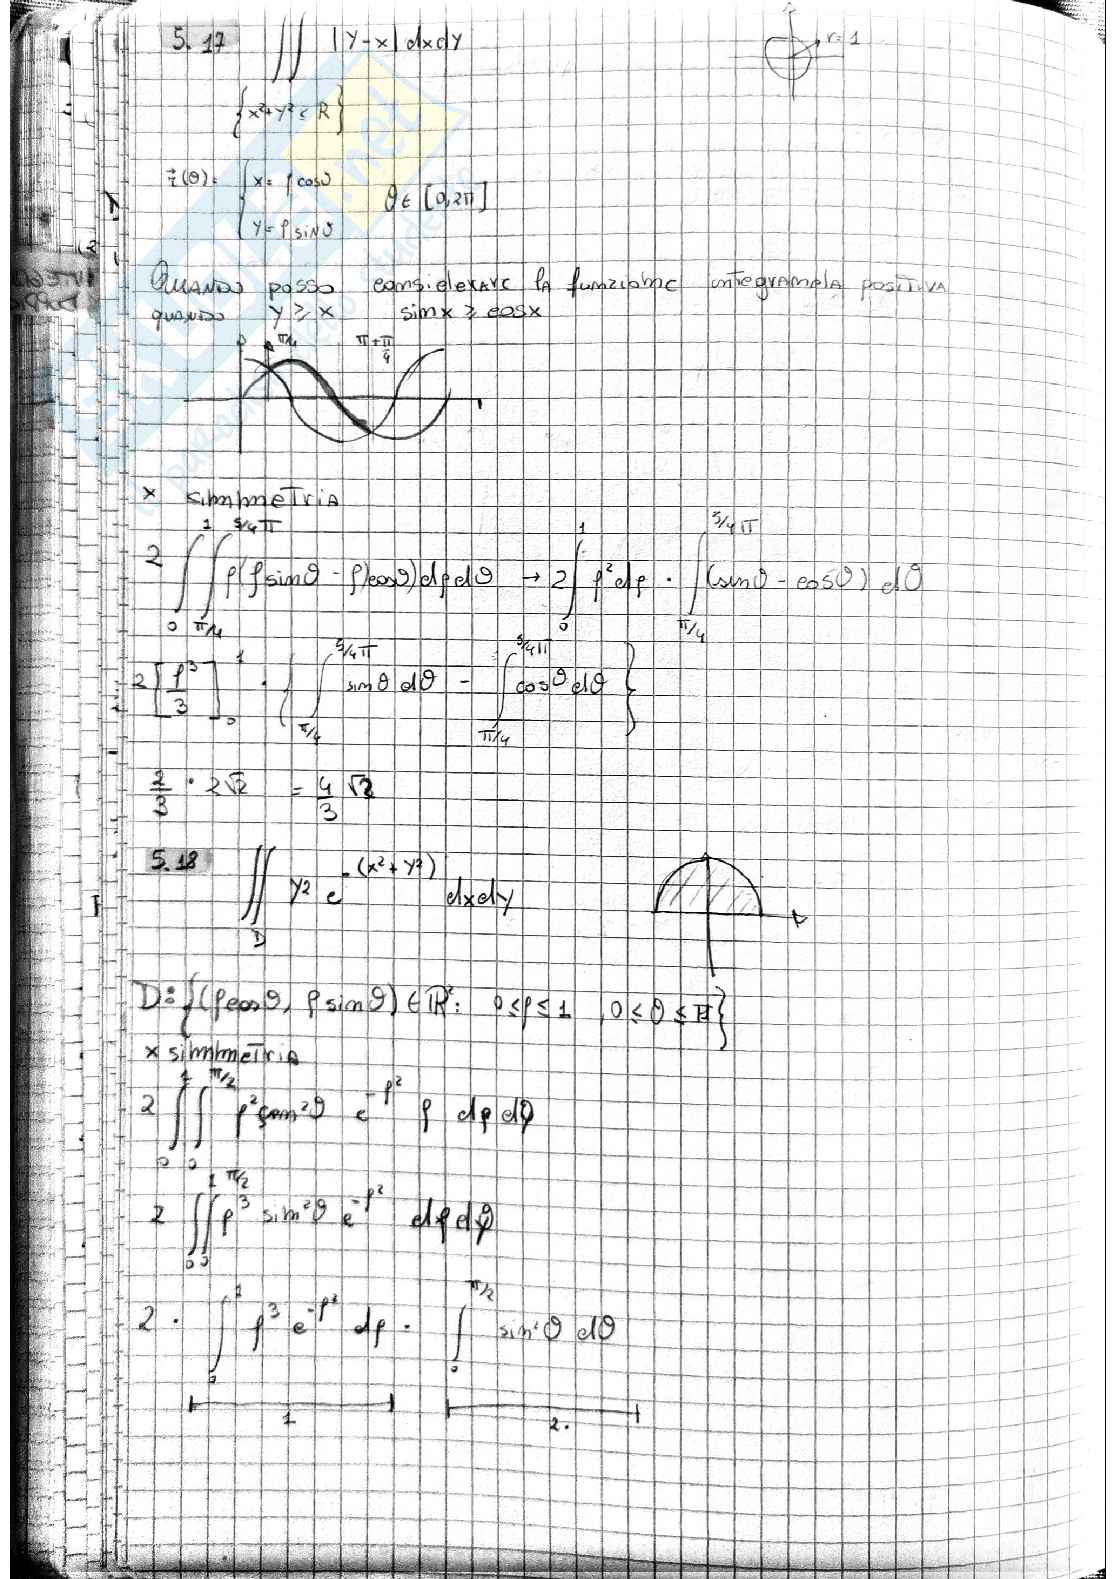 5.17 ∬ |y-x| dxdy r=1
{x²+y² ≤ R}
r⃗(θ): { x = ρ cosθ
y = ρ sinθ θ ∈ [0,2π]
Quando posso considerare la funzione integranda positiva
quando y ≥ x sinx ≥ cosx
π/4 π+π/4
x simmetria
2 ∫₀¹ ∫_{π/4}^{5/4π} ρ(ρsinθ - ρcosθ)dρdθ → 2 ∫₀¹ ρ²dρ · ∫_{π/4}^{5/4π} (sinθ - cosθ) dθ
2 [ρ³/3]₀¹ · { ∫_{π/4}^{5/4π} sinθ dθ - ∫_{π/4}^{5/4π} cosθ dθ }
2/3 · 2√2 = 4/3 √2
5.18 ∬_D y² e^{-(x²+y²)} dxdy
D: {(ρcosθ, ρsinθ) ∈ ℝ²: 0≤ρ≤1, 0≤θ≤π}
x simmetria
2 ∫₀¹ ∫₀^{π/2} ρ² sen²θ e^{-ρ²} ρ dρ dθ
2 ∫₀¹ ∫₀^{π/2} ρ³ sin²θ e^{-ρ²} dρ dθ
2 · ∫₀¹ ρ³ e^{-ρ²} dρ · ∫₀^{π/2} sin²θ dθ
1 2.